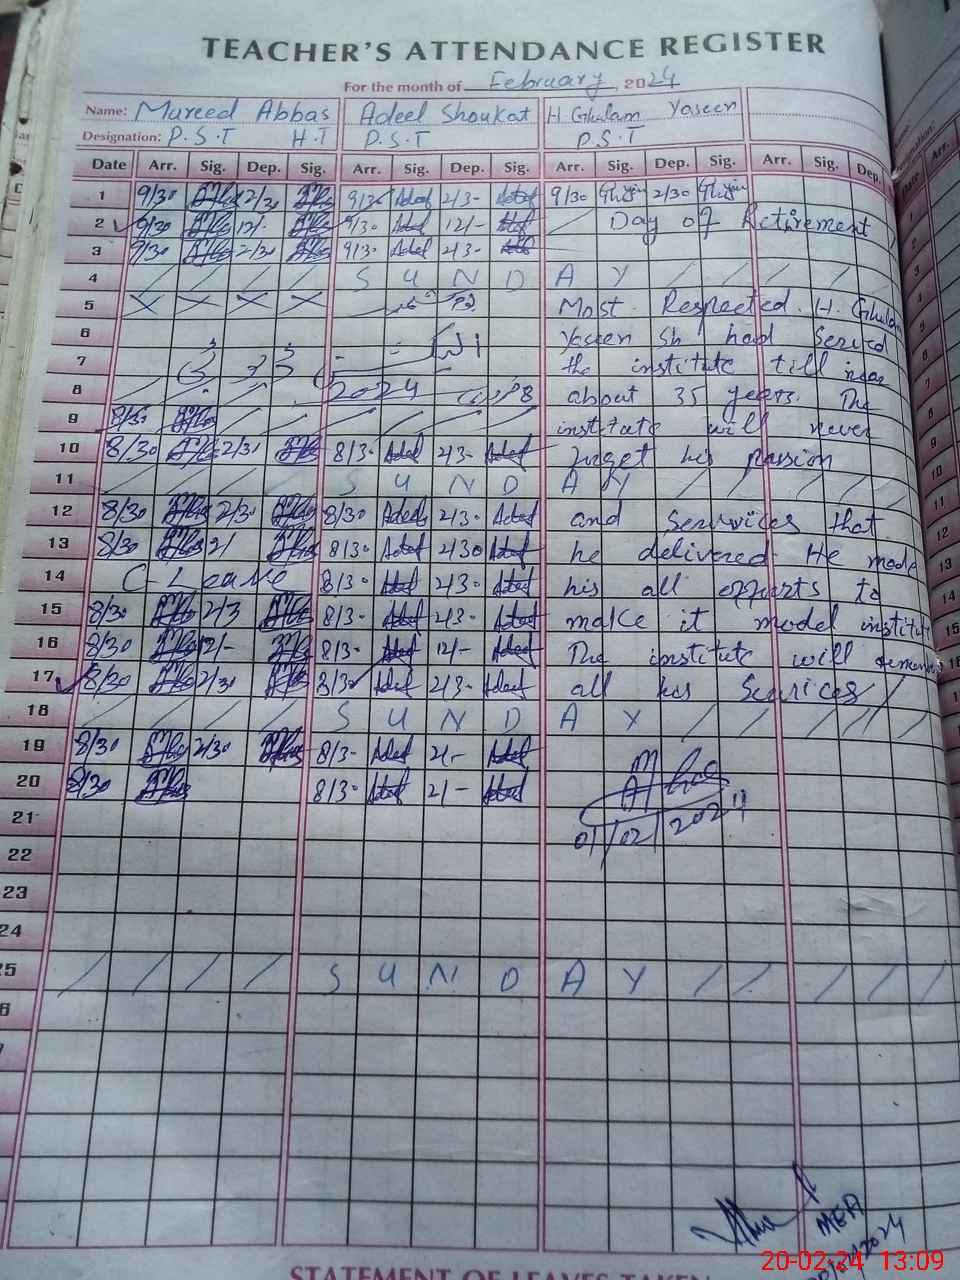 TEACHER'S ATTENDANCE REGISTER
For the month of February, 2024
Name: Mureed Abbas Adeel Shoukat H. Ghulam Yaseen
Designation: P.S.T H.T P.S.T P.S.T
Date Arr. Sig. Dep. Sig. Arr. Sig. Dep. Sig. Arr. Sig. Dep. Sig. Arr. Sig. Dep.
1 9/30 2/30 9/30 Adeel 2/3- Adeel 9/30 2/30
2 9/30 12/- 9/30 Adeel 12/- Adeel Day of Retirement
3 9/30 2/30 9/30 Adeel 2/3- Adeel
4 / / / / S U N D A Y / / / / /
5 X X X X Most Respected. H. Ghulam
6 Yaseen Sb had Served
7 the institute till near
8 / / / 2024 8 about 35 years. The
9 8/30 / / / / / / institute will never
10 8/30 2/30 8/3- Adeel 2/3- Adeel forget his passion
11 / / / S U N D A Y / / / / /
12 8/30 2/30 8/30 Adeel 2/3- Adeel and Serwices that
13 8/30 2/ 8/3- Adeel 2/30 Adeel he delivered. He made
14 C-Leave 8/3- Adeel 2/3- Adeel his all efforts to
15 8/30 2/3 8/3- Adeel 2/3- Adeel make it model institute
16 8/30 12/- 8/3- Adeel 12/- Adeel The institute will
17 8/30 2/30 8/30 Adeel 2/3- Adeel all his Services
18 / / / / S U N D A Y / / / / /
19 8/30 2/30 8/3- Adeel 2/- Adeel
20 8/30 8/3- Adeel 2/- Adeel
21 01/02/2024
22
23
24
25 / / / / S U N D A Y / / / / /
MEA
20-02-24 13:09
STATEMENT OF LEAVES TAKEN